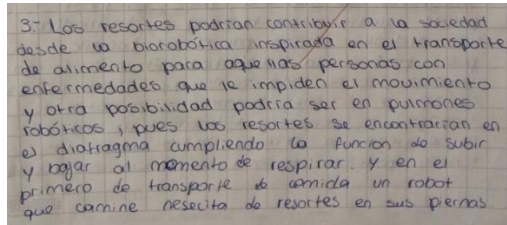 3.- Los resortes podrían contribuir a la sociedad
desde la biorobótica inspirada en el transporte
de alimento para aquellas personas con
enfermedades que le impiden el movimiento
y otra posibilidad podría ser en pulmones
robóticos, pues los resortes se encontrarían en
el diafragma cumpliendo la función de subir
y bajar al momento de respirar. Y en el
primero de transporte de comida un robot
que camine nesecita de resortes en sus piernas